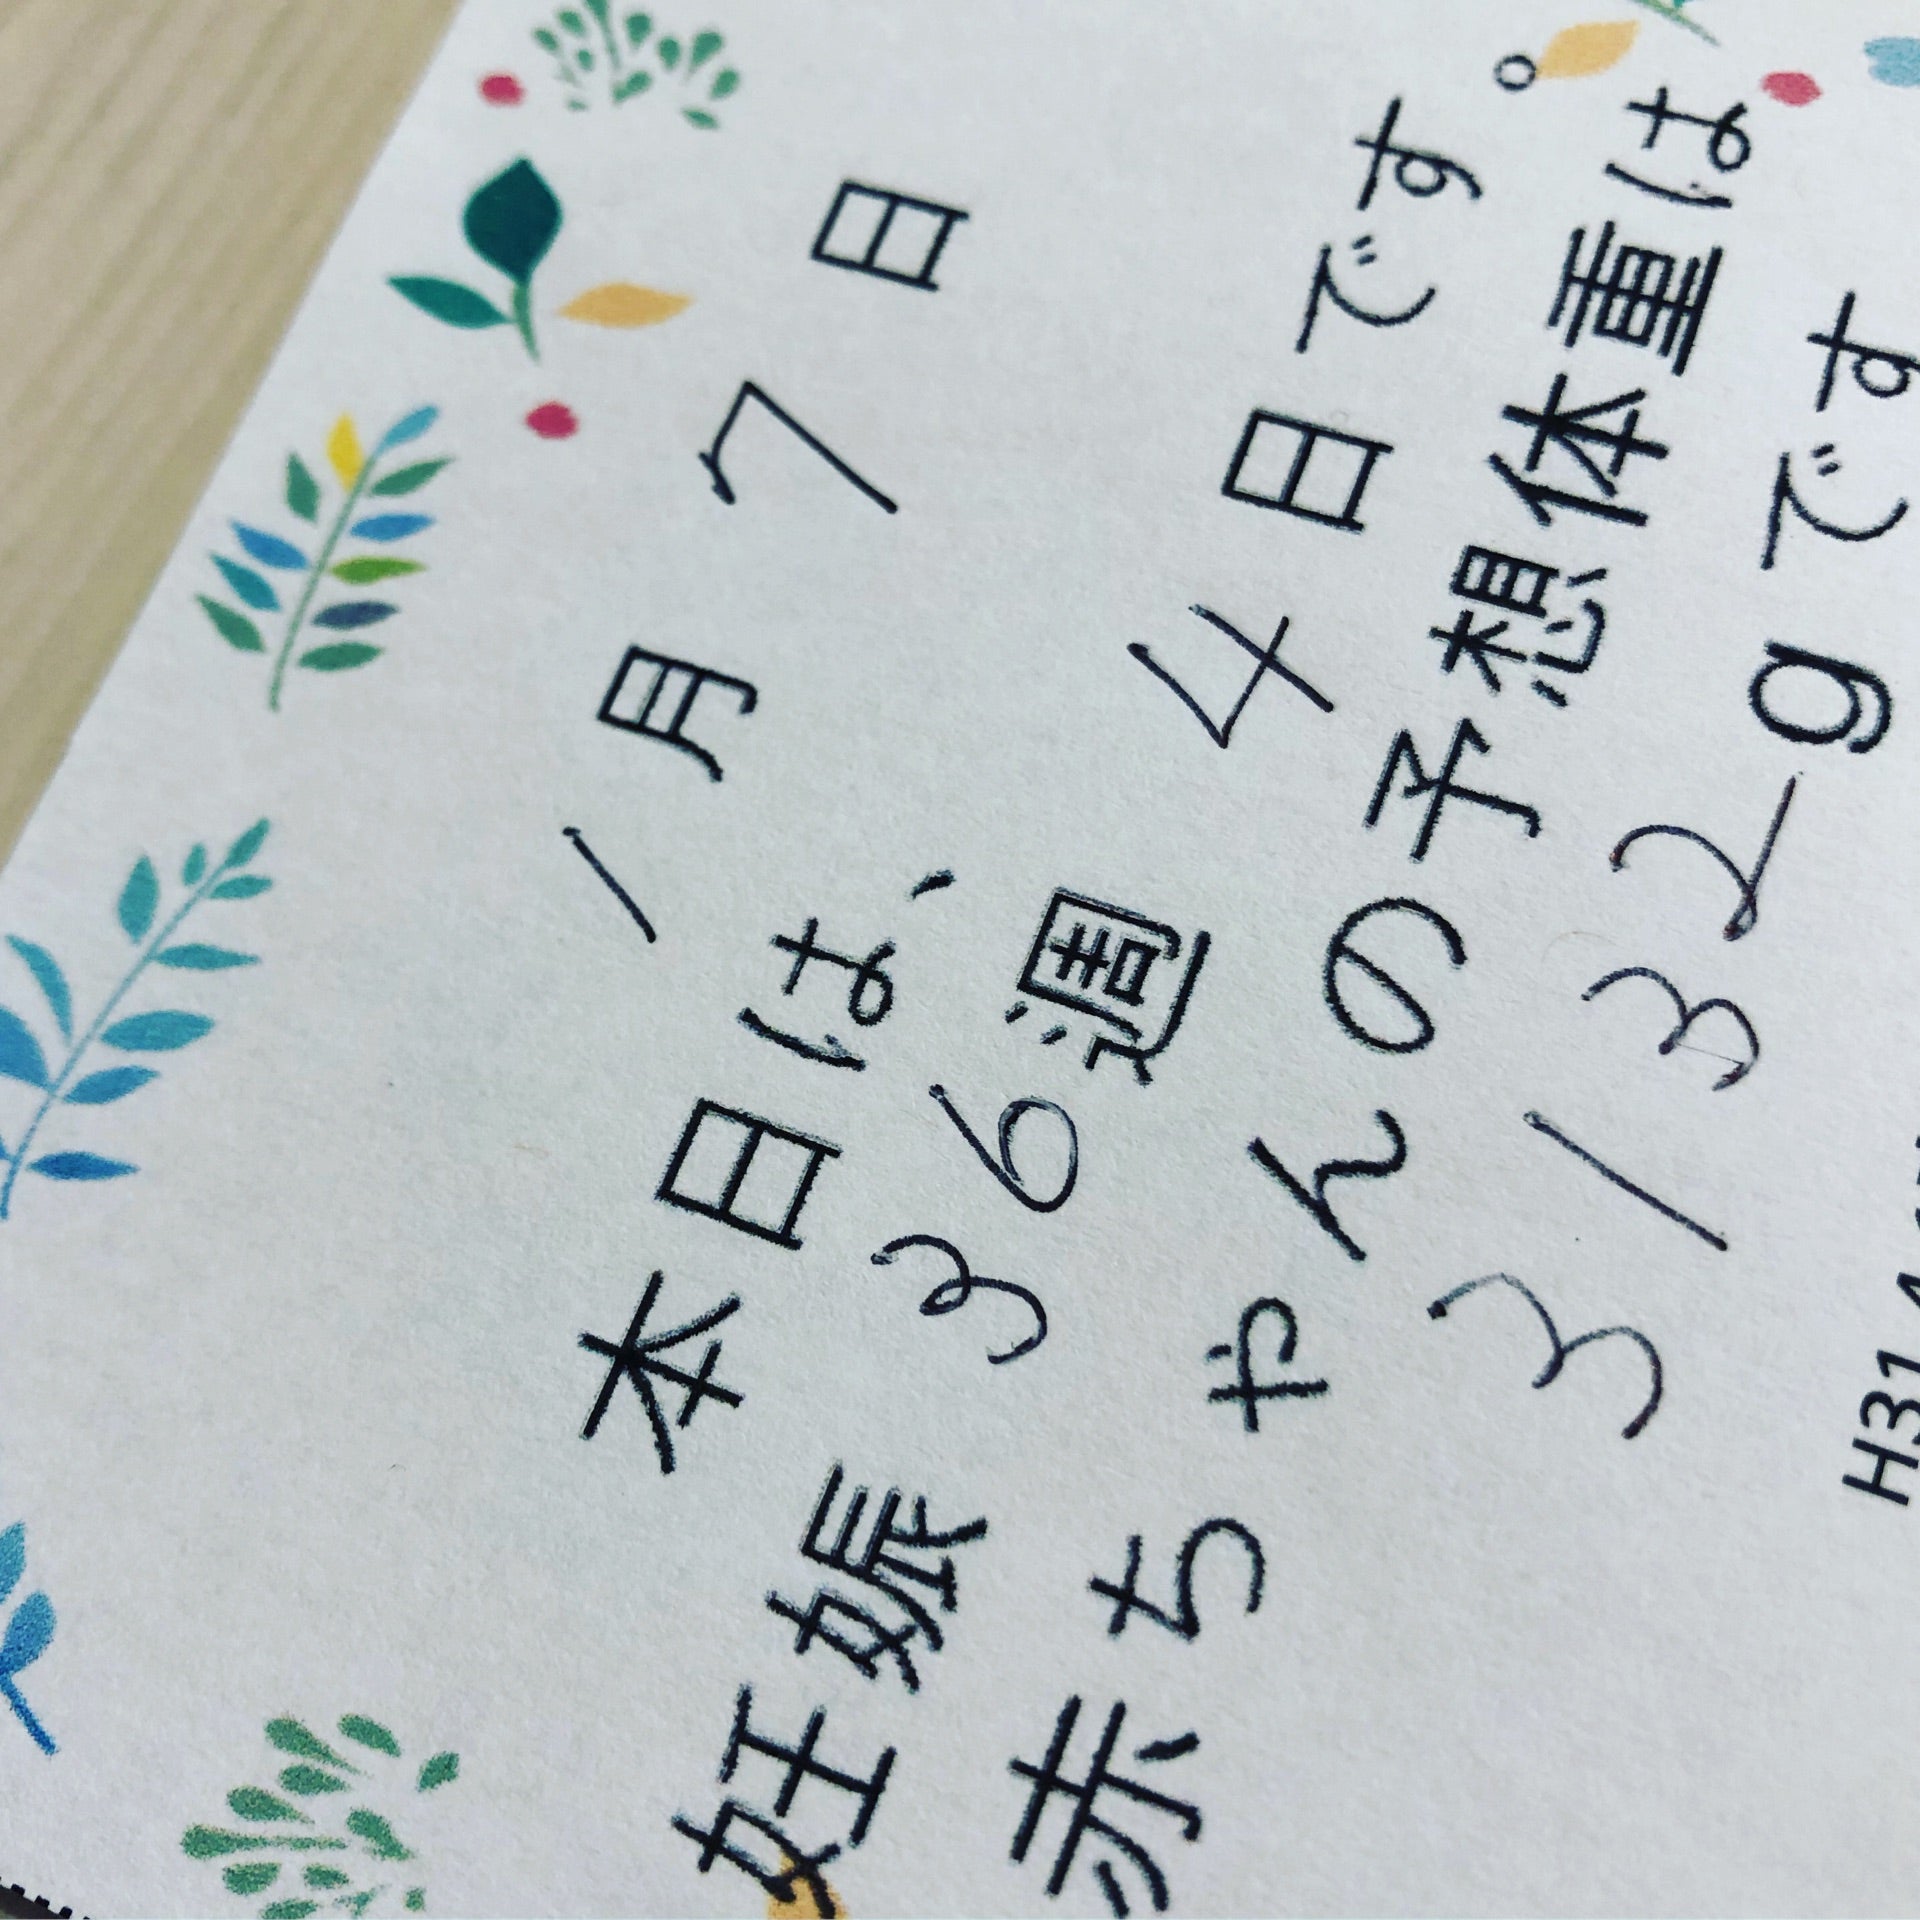 1月7日
本日は、
妊娠36週4日です。
赤ちゃんの予想体重は
3132gです